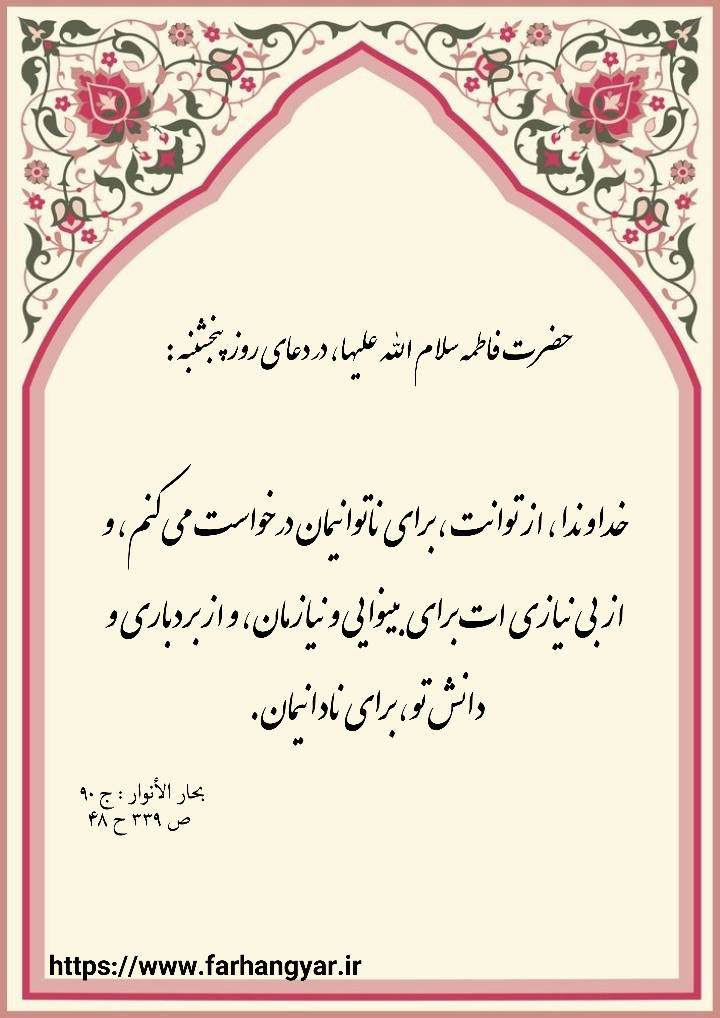 حضرت فاطمه سلام الله علیها، در دعای روز پنجشنبه :
خداوندا، از توانت، برای ناتوانیمان درخواست می کنم، و
از بی نیازی ات برای بینوایی و نیازمان، و از بردباری و
دانش تو، برای نادانیمان.
بحار الأنوار : ج ۹۰
ص ۳۳۹ ح ۴۸
https://www.farhangyar.ir